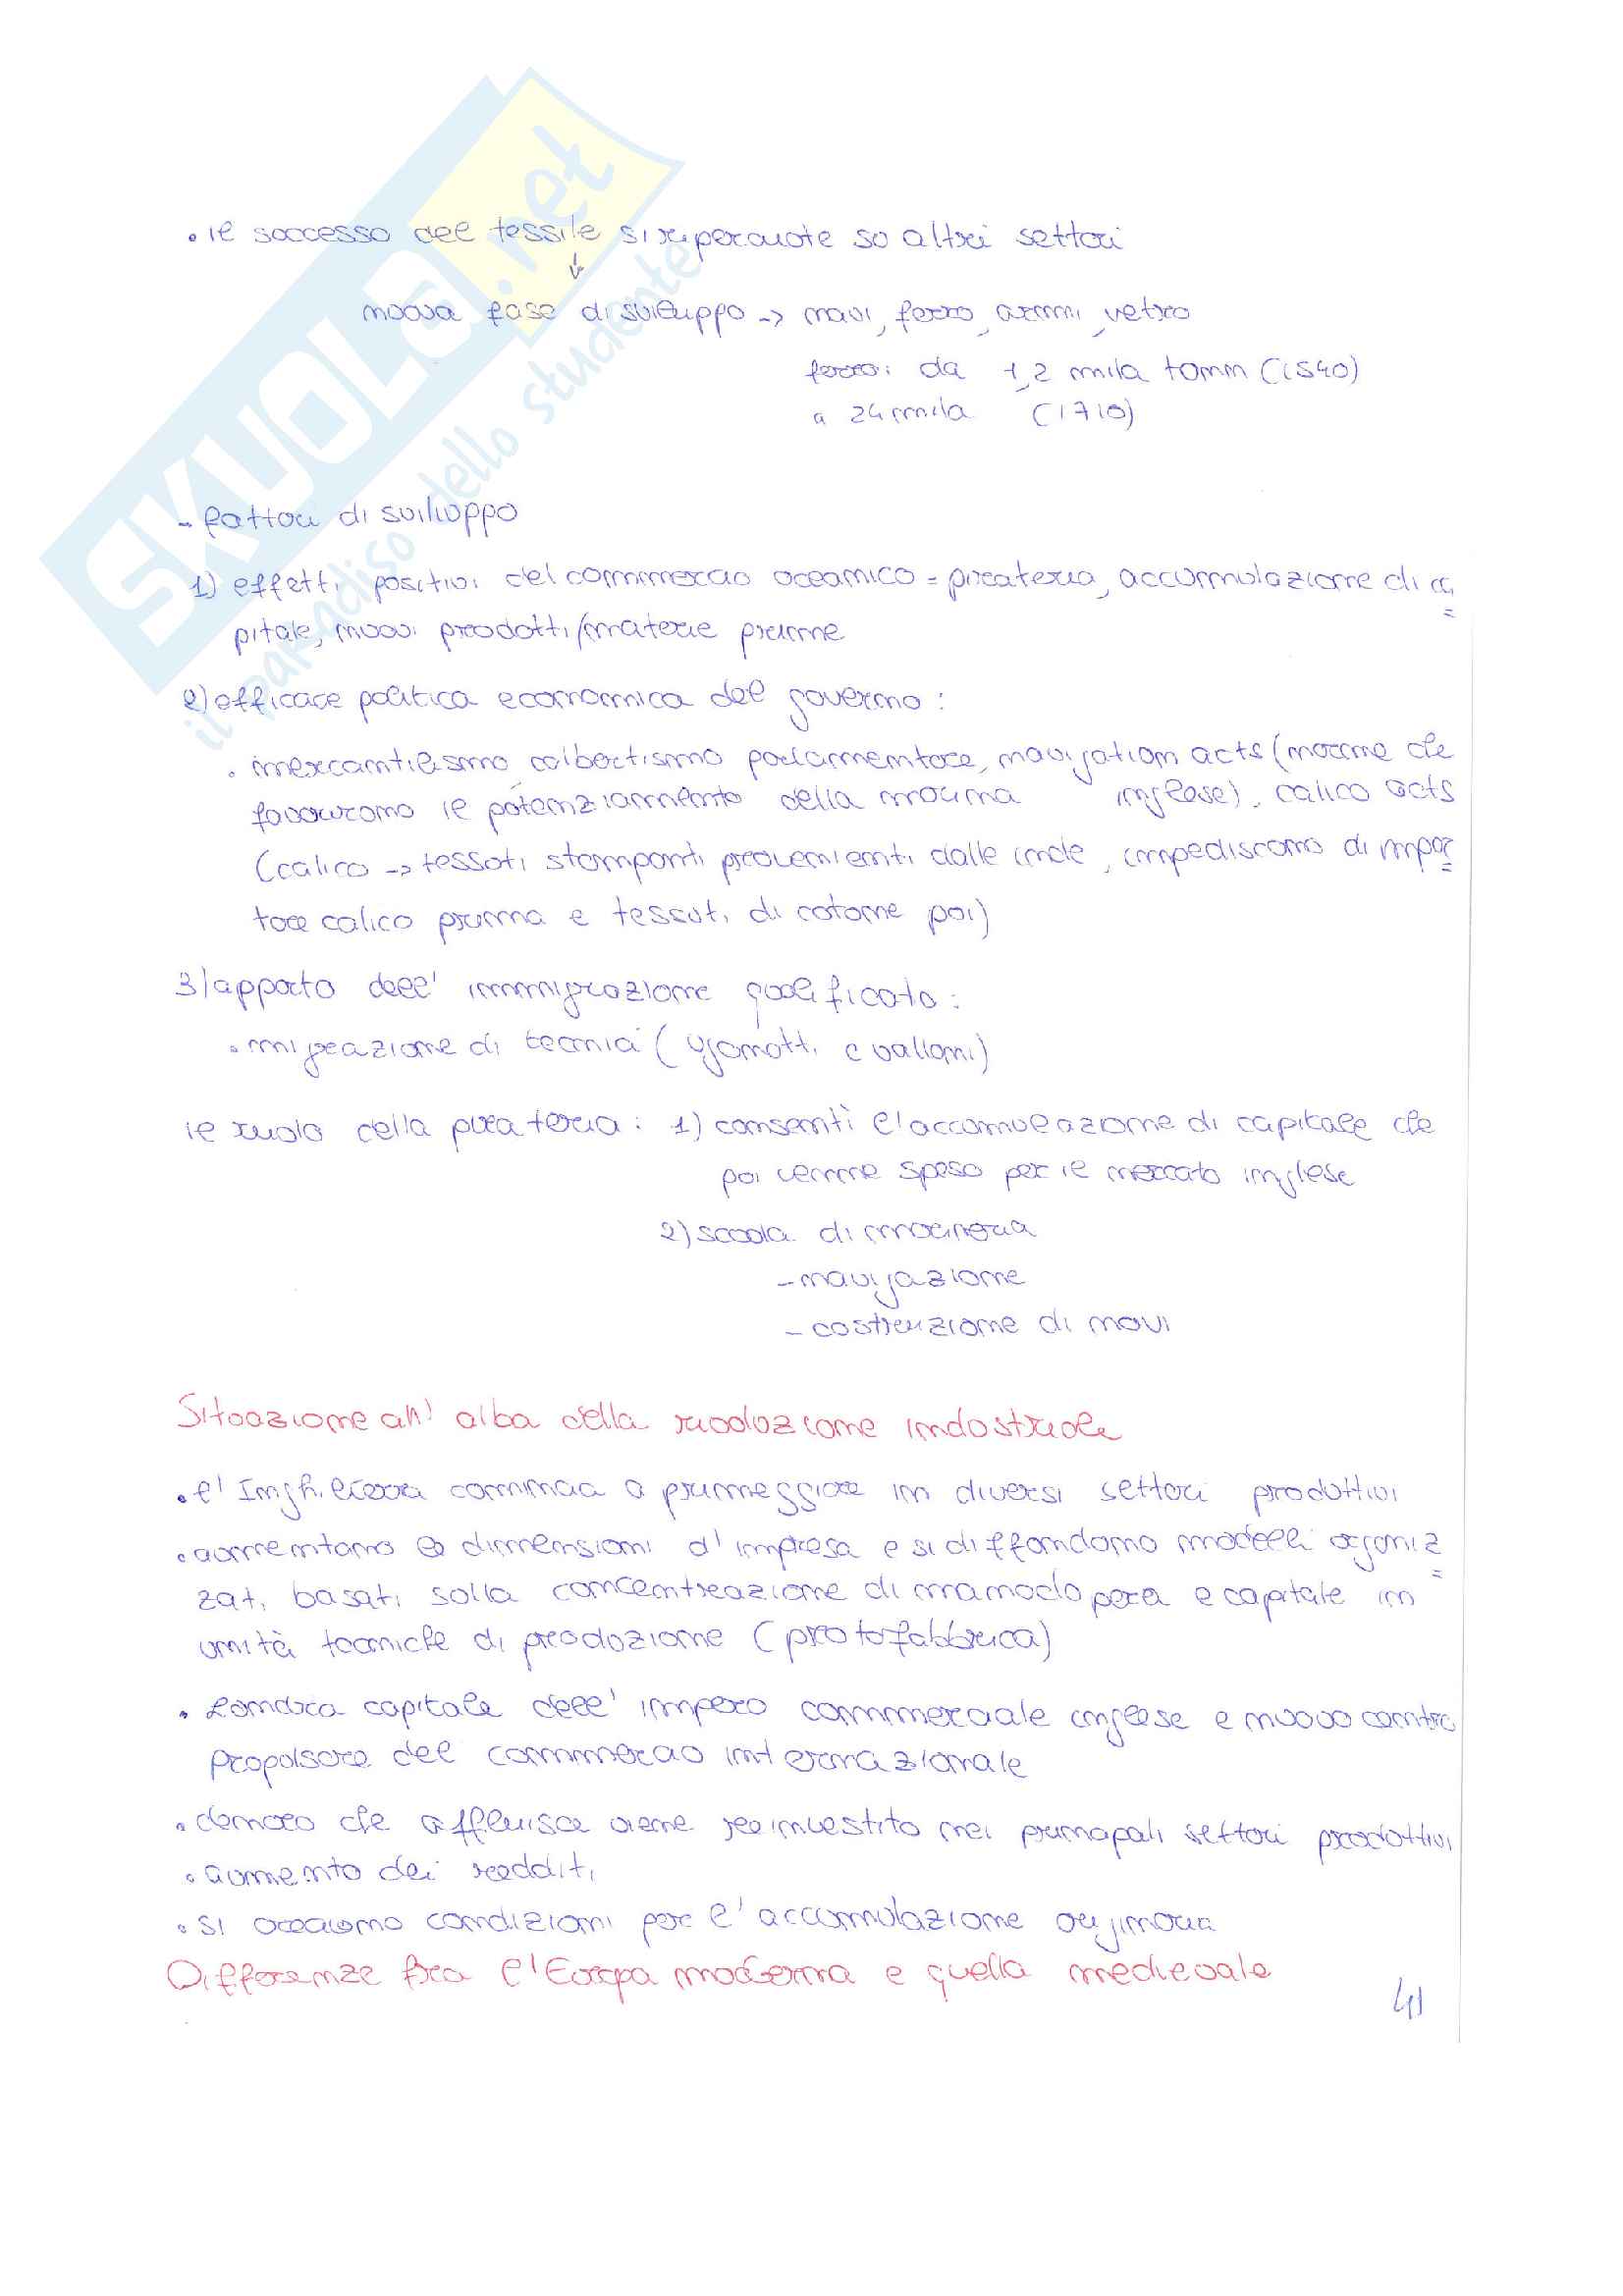 SKUOLA.net
il paradiso dello studente
• il successo del tessile si ripercuote su altri settori
↓
nuova fase di sviluppo -> navi, ferro, armi, vetro
ferro: da 1,2 mila tonn (1540)
a 24 mila (1710)
- fattori di sviluppo
1) effetti positivi del commercio oceanico = pirateria, accumulazione di ca=
pitale, nuovi prodotti/materie prime
2) efficace politica economica del governo:
• mercantilismo, colbertismo parlamentare, navigation acts (norme che
favoriscono il potenziamento della marina inglese), calico acts
(calico -> tessuti stampanti provenienti dalle Indie, impediscono di impor=
tare calico prima e tessuti di cotone poi)
3) apporto dell' immigrazione qualificata:
• migrazione di tecnici (ugonotti e valloni)
il ruolo della pirateria: 1) consentì l'accumulazione di capitale che
poi venne speso per il mercato inglese
2) scuola di marineria
- navigazione
- costruzione di navi
Situazione all' alba della rivoluzione industriale
• l' Inghilterra comincia a primeggiare in diversi settori produttivi
• aumentano le dimensioni d'impresa e si diffondono modelli organiz=
zati basati sulla concentrazione di manodopera e capitale in
unità tecniche di produzione (protofabbrica)
• Londra capitale dell' impero commerciale inglese e nuovo centro
propulsore del commercio internazionale
• denaro che affluisce viene reinvestito nei principali settori produttivi
• aumento dei redditi
• si creano condizioni per l' accumulazione originaria
Differenze fra l'Europa moderna e quella medievale
41